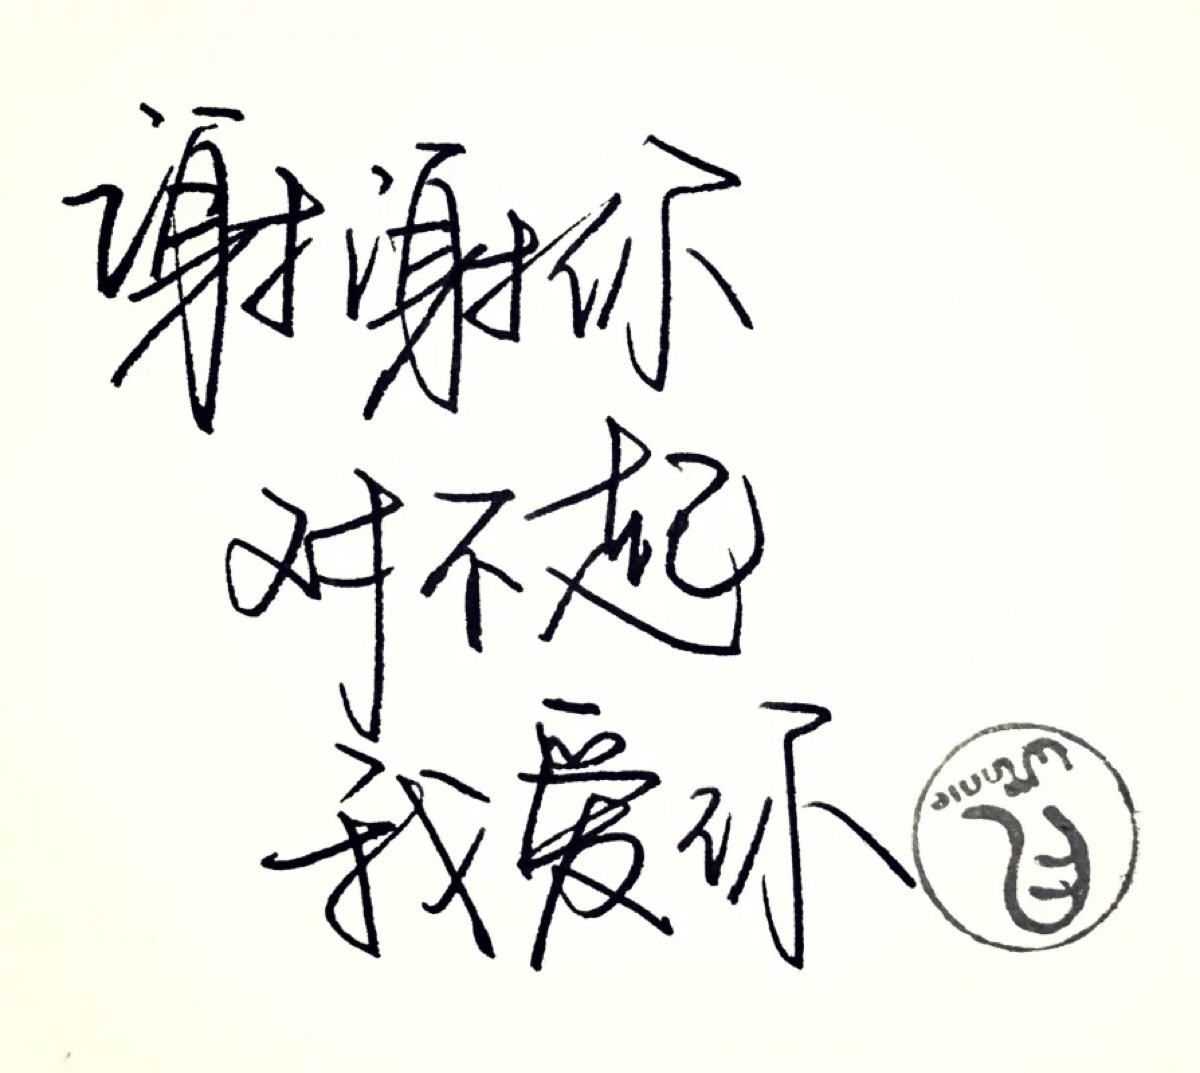 谢谢你
对不起
我爱你